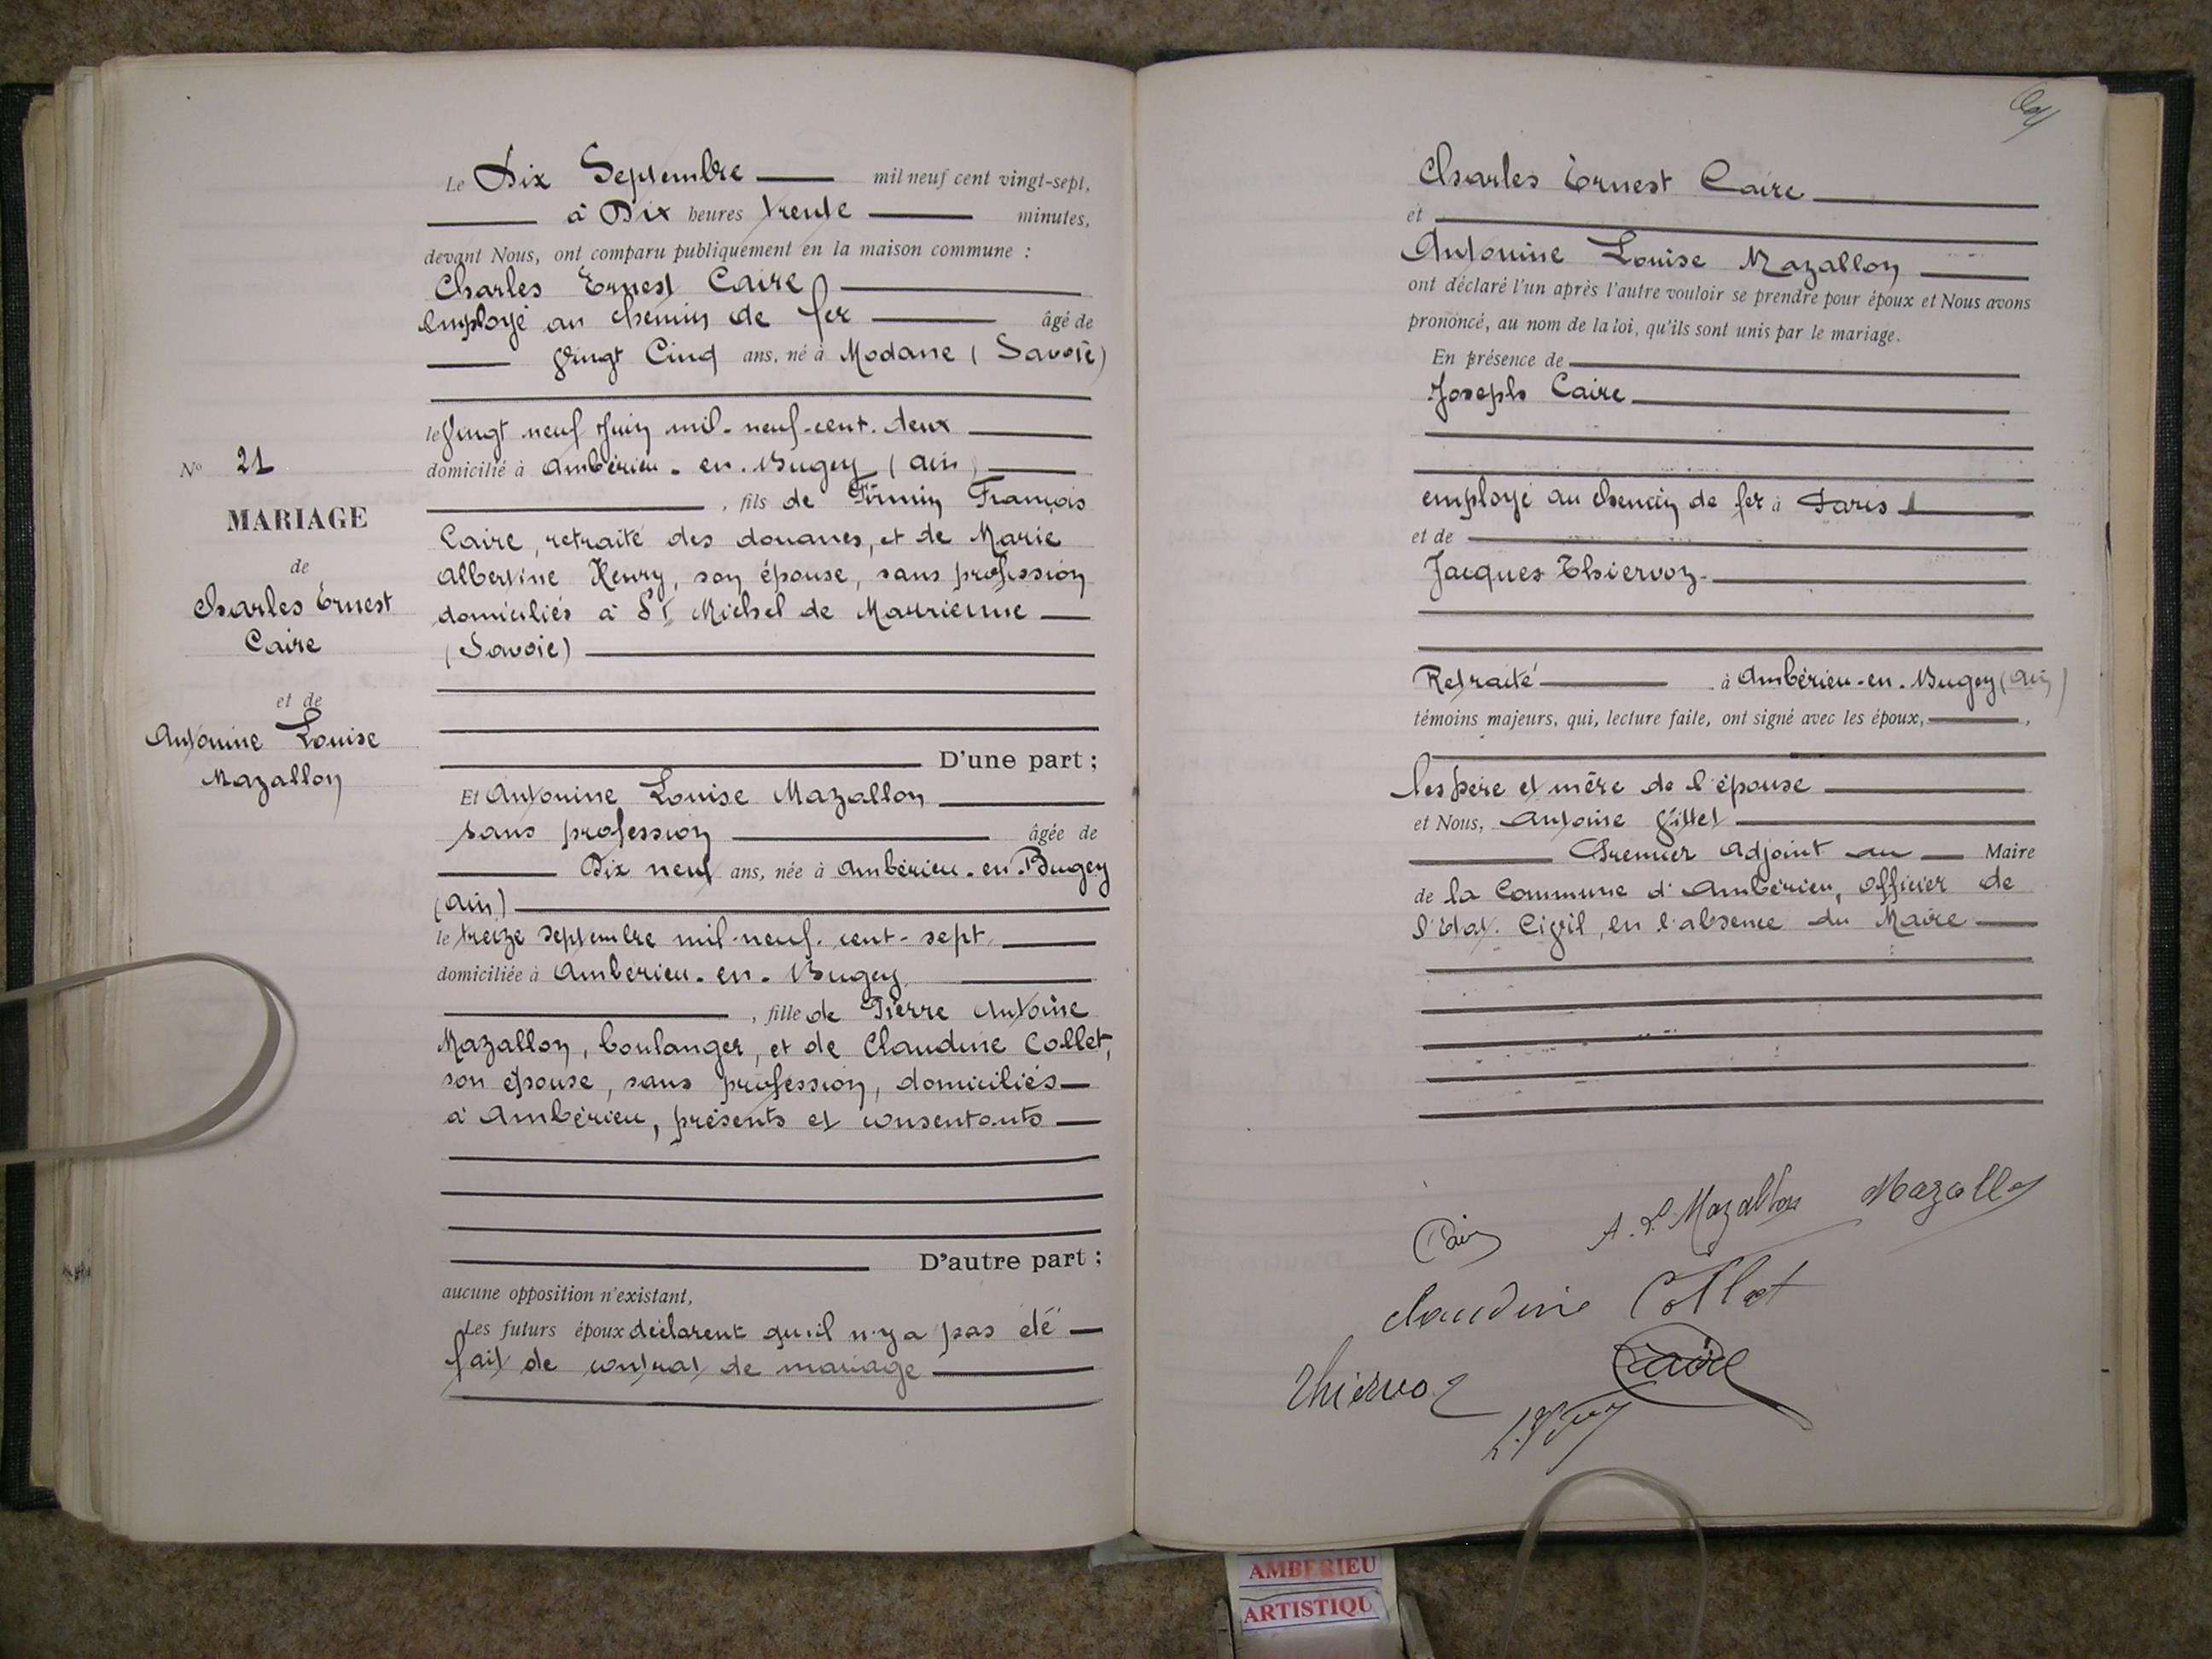 Le Dix Septembre mil neuf cent vingt-sept,
à Dix heures trente minutes,
devant Nous, ont comparu publiquement en la maison commune :
Charles Ernest Caire
employé au chemin de fer âgé de
Vingt Cinq ans, né à Modane (Savoie)
le Vingt neuf Juin mil-neuf-cent-deux
domicilié à Ambérieu-en-Bugey (Ain)
, fils de Firmin François
Caire, retraité des douanes, et de Marie
Albertine Henry, son épouse, sans profession
domiciliés à St Michel de Maurienne
(Savoie)
D'une part ;
Et Antonine Louise Mazallon
sans profession âgée de
Dix neuf ans, née à Ambérieu-en-Bugey
(Ain)
le treize septembre mil-neuf-cent-sept
domiciliée à Ambérieu-en-Bugey
, fille de Pierre Antoine
Mazallon, boulanger, et de Claudine Collet,
son épouse, sans profession, domiciliés
à Ambérieu, présents et consentants
D'autre part ;
aucune opposition n'existant,
Les futurs époux déclarent qu'il n'y a pas été
fait de contrat de mariage
No 21
MARIAGE
de
Charles Ernest
Caire
et de
Antonine Louise
Mazallon
Charles Ernest Caire
et
Antonine Louise Mazallon
ont déclaré l'un après l'autre vouloir se prendre pour époux et Nous avons
prononcé, au nom de la loi, qu'ils sont unis par le mariage.
En présence de
Joseph Caire
employé au chemin de fer à Paris
et de
Jacques Thiervoz
Retraité à Ambérieu-en-Bugey (Ain)
témoins majeurs, qui, lecture faite, ont signé avec les époux,
les père et mère de l'épouse
et Nous, Antoine
Premier Adjoint au Maire
de la Commune d'Ambérieu, officier de
l'Etat Civil, en l'absence du Maire
A. L. Mazallon Mazallon
Claudine Collet
Thiervoz Caire
AMBERIEU
ARTISTIQU